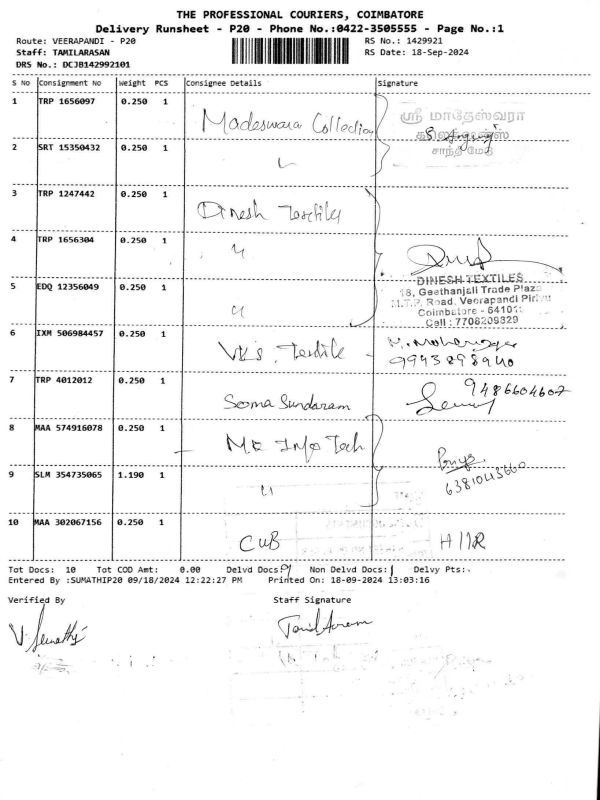 THE PROFESSIONAL COURIERS, COIMBATORE
Delivery Runsheet - P20 - Phone No.:0422-3505555 - Page No.:1
Route: VEERAPANDI - P20 RS No.: 1429921
Staff: TAMILARASAN RS Date: 18-Sep-2024
DRS No.: DCJB142992101
S No Consignment No Weight PCS Consignee Details Signature
1 TRP 1656097 0.250 1 Madeswara Collection
ஸ்ரீ மாதேஸ்வரா
2 SRT 15350432 0.250 1 "
3 TRP 1247442 0.250 1 Dinesh Textiles
4 TRP 1656304 0.250 1 "
DINESH TEXTILES
5 EDQ 12356049 0.250 1 "
18, Geethanjali Trade Plaza
M.T.P. Road, Veerapandi Pirivu
Coimbatore - 641019
Cell : 7708209829
6 IXM 506984457 0.250 1 VKS Textile
9943898940
7 TRP 4012012 0.250 1 Soma Sundaram 9486604607
8 MAA 574916078 0.250 1 Info Tech Priya
9 SLM 354735065 1.190 1 " 6381043660
10 MAA 302067156 0.250 1 CUB
Tot Docs: 10 Tot COD Amt: 0.00 Delvd Docs: 9 Non Delvd Docs: 1 Delvy Pts:
Entered By :SUMATHIP20 09/18/2024 12:22:27 PM Printed On: 18-09-2024 13:03:16
Verified By Staff Signature
V. Sumathi